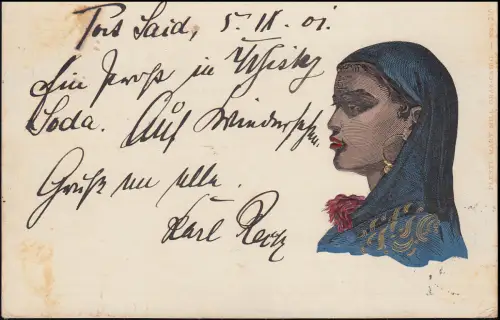 Port Said, 5. IX. 01.
Ein Prosit in Whisky
Soda. Auf Wiedersehen.
Grüße an alle.
Karl